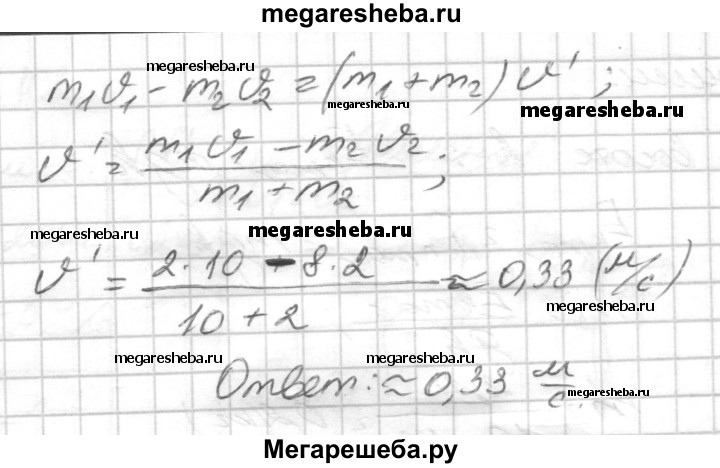 megaresheba.ru
megaresheba.ru
m₁ϑ₁ - m₂ϑ₂ = (m₁ + m₂) ϑ' ;
megaresheba.ru
ϑ' = (m₁ϑ₁ - m₂ϑ₂) / (m₁ + m₂) ;
megaresheba.ru megaresheba.ru
ϑ' = (2·10 - 8·2) / (10 + 2) ≈ 0,33 (м/с)
megaresheba.ru
megaresheba.ru megaresheba.ru
Ответ: ≈ 0,33 м/с.
megaresheba.ru
Мегарешеба.ру